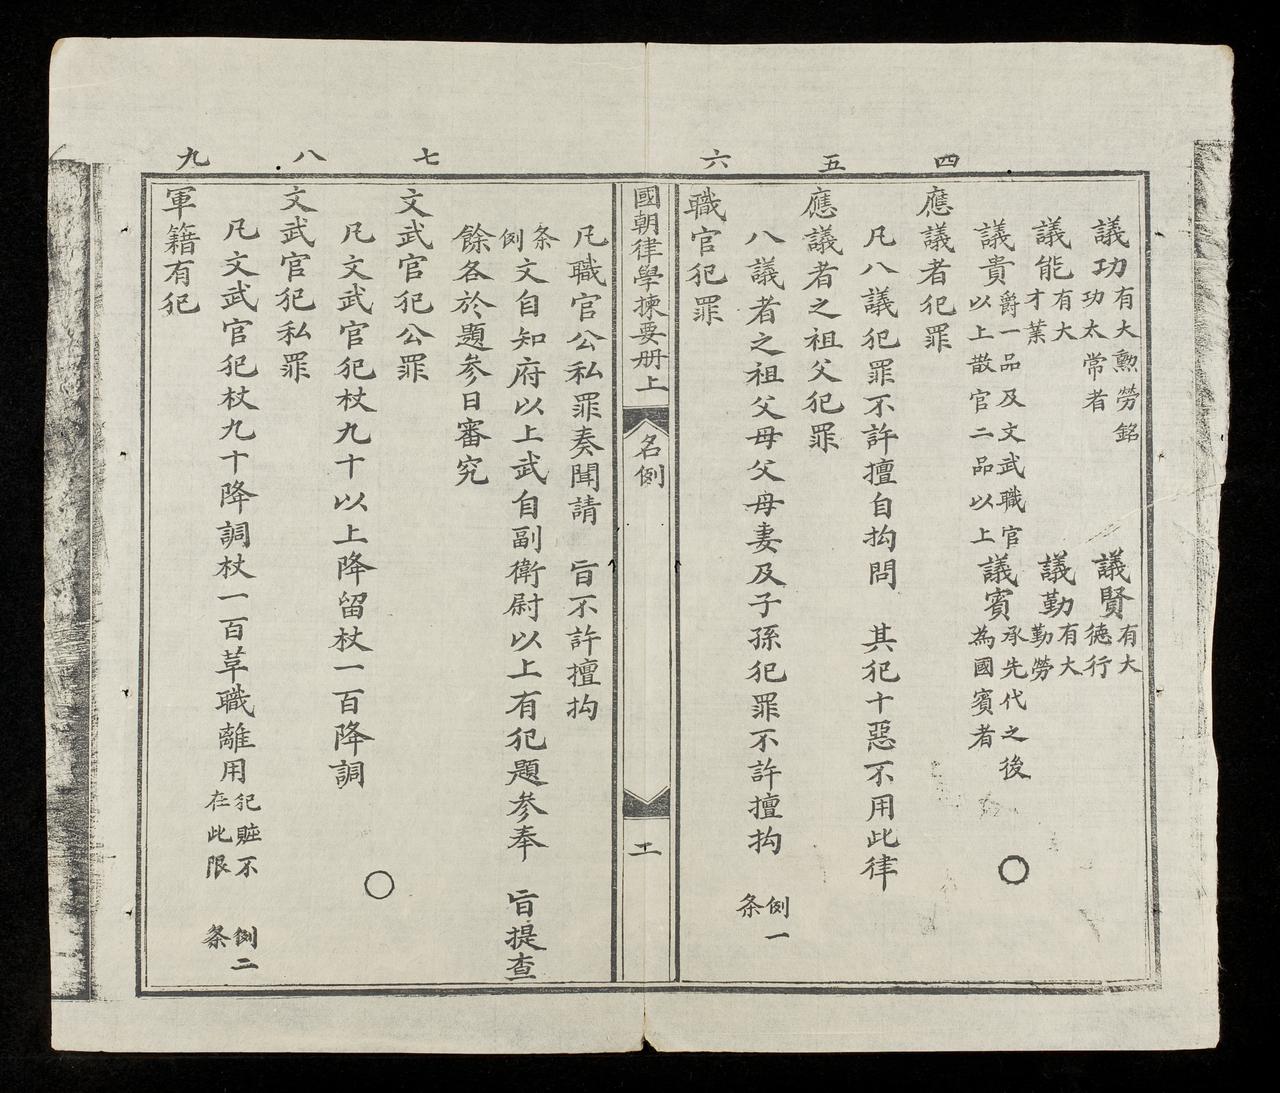 議功有大勲勞銘功太常者 議賢有大德行
議能有大才業 議勤有大勤勞
議貴爵一品及文武職官以上散官二品以上 議賓承先代之後為國賓者 〇
四
應議者犯罪
凡八議犯罪不許擅自拘問 其犯十惡不用此律
五
應議者之祖父犯罪
八議者之祖父母父母妻及子孫犯罪不許擅拘 例一条
六
職官犯罪
國朝律學揀要册上 名例 十一
凡職官公私罪奏聞請 旨不許擅拘
条例文自知府以上武自副衛尉以上有犯題參奉 旨提查
餘各於題參日審究
七
文武官犯公罪
凡文武官犯杖九十以上降留杖一百降調 〇
八
文武官犯私罪
凡文武官犯杖九十降調杖一百革職離用犯賍不在此限 例二条
九
軍籍有犯